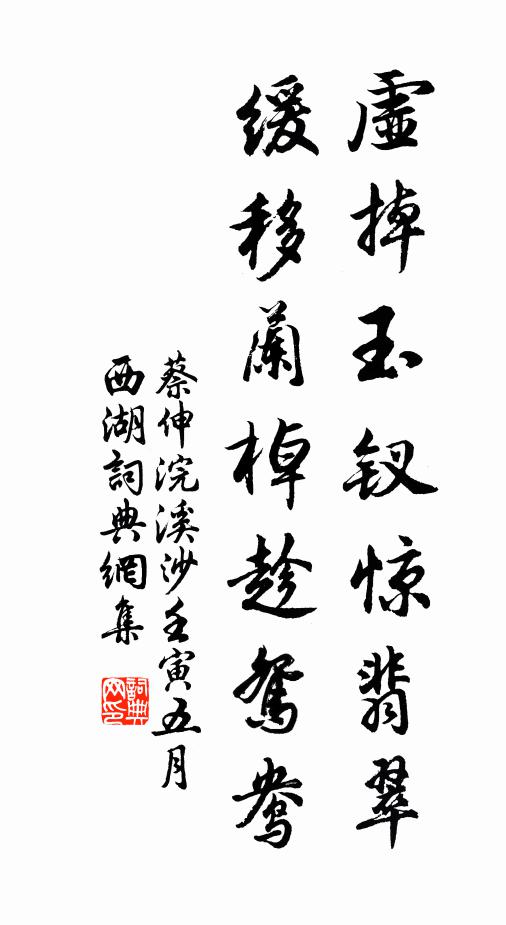 虛掉玉钗惊翡翠
緩移蘭棹趁鴛鴦
蔡伸浣溪沙壬寅五月
西湖詞典網集
詞典
网印